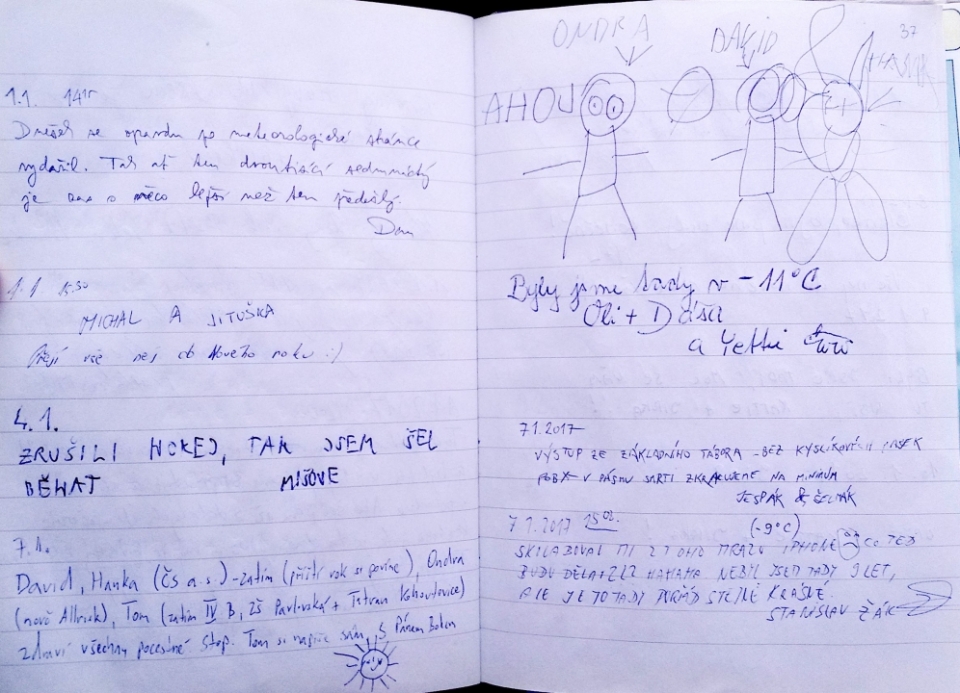 1.1. 14¹⁵
Dnešek se opravdu po meteorologické stránce
vydařil. Tak ať ten dvoutisící sedmnáctý
je o něco lepší než ten předešlý.
Dan
1.1 15³⁰
MICHAL A JITUŠKA
Přejí vše nej do Nového roku :)
4.1.
ZRUŠILI HOKEJ, TAK JSEM ŠEL
BĚHAT MÍŠOVE
7.1.
David, Hanka (ČS a.s.) - zatím (příští rok se povine), Ondra
(nově Allrisk), Tom (zatím IV B, ZŠ Pavlovská + Tetran Kohoutovice)
zdraví všechny pocestné Stop. Tom se napíše sám, S Pánem Bohem
37
ONDRA
DAVID
HANKA
AHOJ
Byly jsme tady v -11°C
Oli + Dáša
a Yetti
7.1.2017
VÝSTUP ZE ZÁKLADNÍHO TÁBORA - BEZ KYSLÍKOVÝCH MASEK
POBYT V PÁSMU SMRTI ZKRACUJEME NA MINIMUM
JESPÁK & ČELÁK
7.1.2017 15⁰².
(-9°C)
SKILABOVAL MI Z TOHO MRAZU IPHONE CO TEĎ
BUDU DĚLAT HAHAHA NEBYL JSEM TADY 9 LET,
ALE JE TO TADY POŘÁD STEJNĚ KRÁSNÉ.
STANISLAV ŽÁK